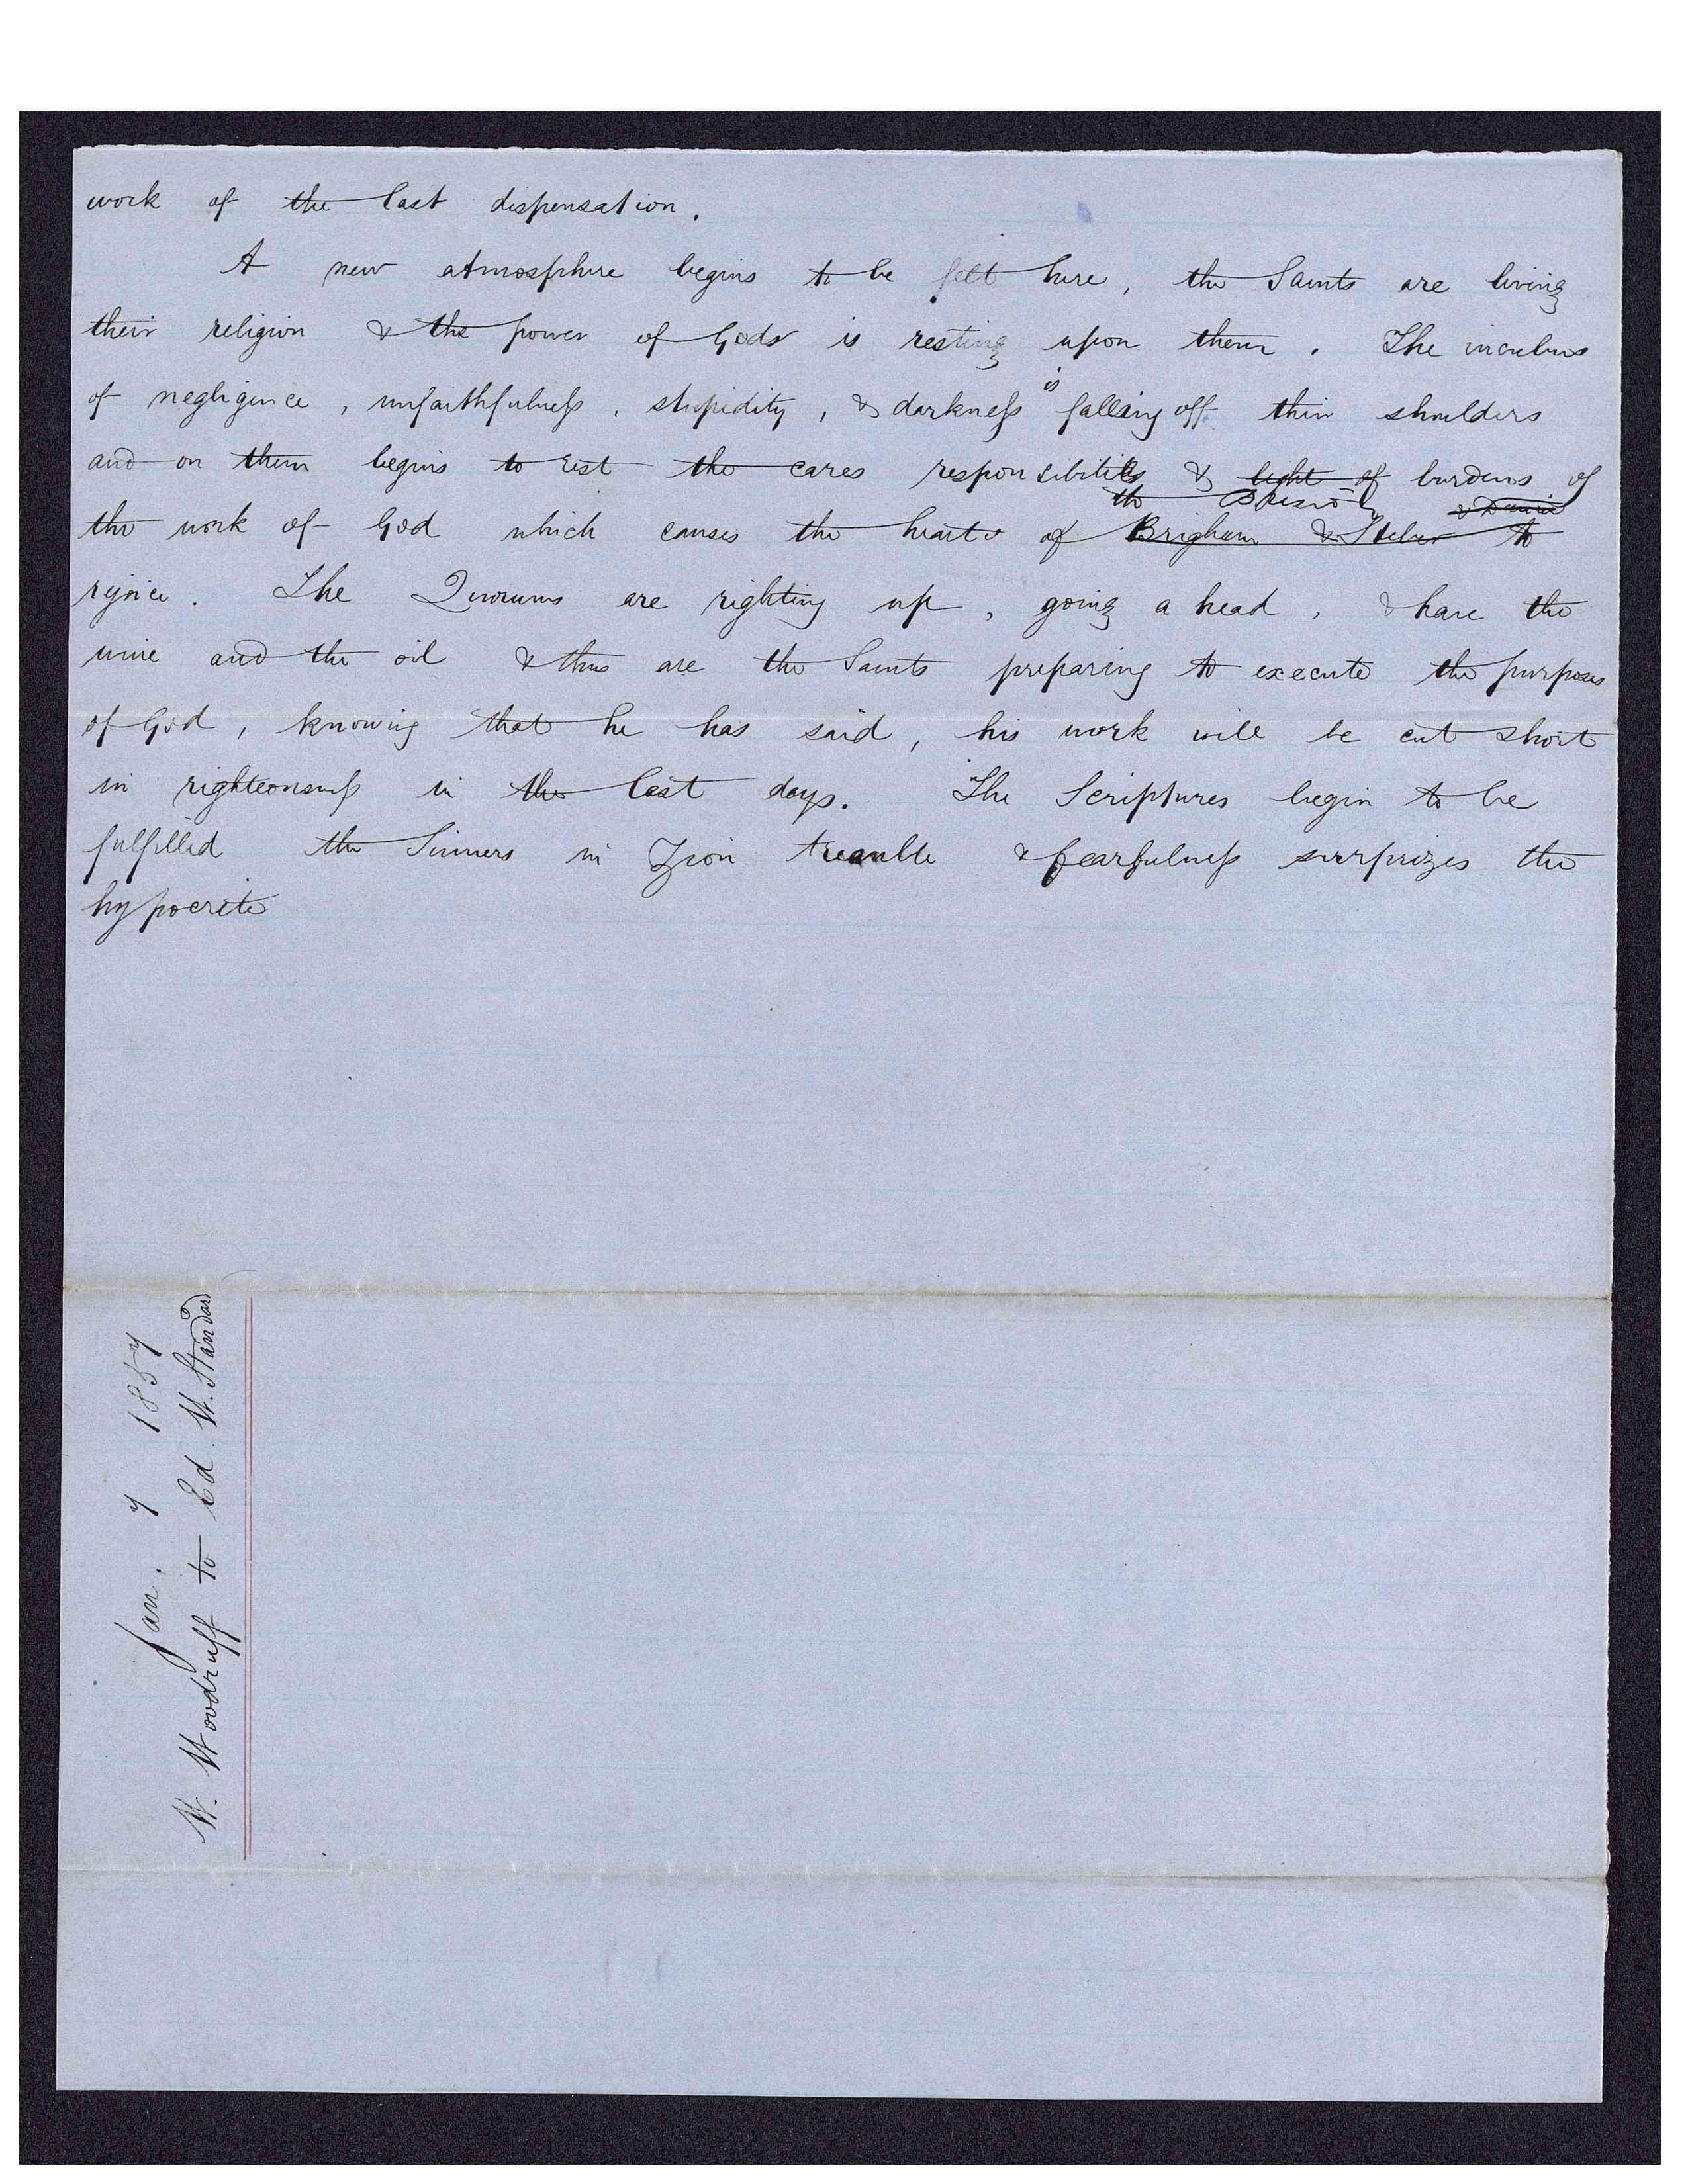 work of the last dispensation.
A new atmosphere begins to be felt here, the Saints are living
their religion & the power of Gods is resting upon them. The incubus
of negligence, unfaithfulness, stupidity, & darkness is falling off their shoulders
and on them begins to rest the cares responsibilities & light of burdens of
the Presidency
the work of God which causes the hearts of Brigham & Heber to
rejoice. The Quorums are righting up, going a head, & have the
wine and the oil & thus are the Saints preparing to execute the purposes
of God, knowing that he has said, his work will be cut short
in righteousness in the last days. The Scriptures begin to be
fulfilled the Sinners in Zion treamble & fearfulness surprizes the
hypocrite
Jan. 7 1857
W. Woodruff to Ed. W. Standard